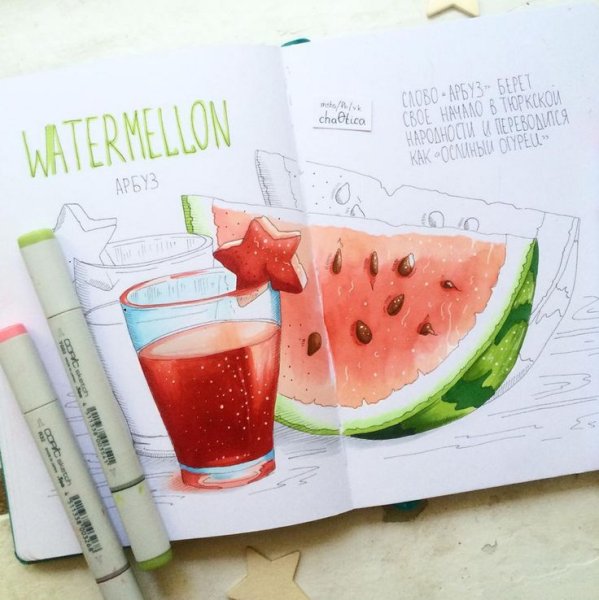 WATERMELLON
АРБУЗ
insta/fb/vk
cha0tica
СЛОВО "АРБУЗ" БЕРЕТ
СВОЕ НАЧАЛО В ТЮРКСКОЙ
НАРОДНОСТИ И ПЕРЕВОДИТСЯ
КАК "ОСЛИНЫЙ ОГУРЕЦ"
COPIC sketch
COPIC sketch